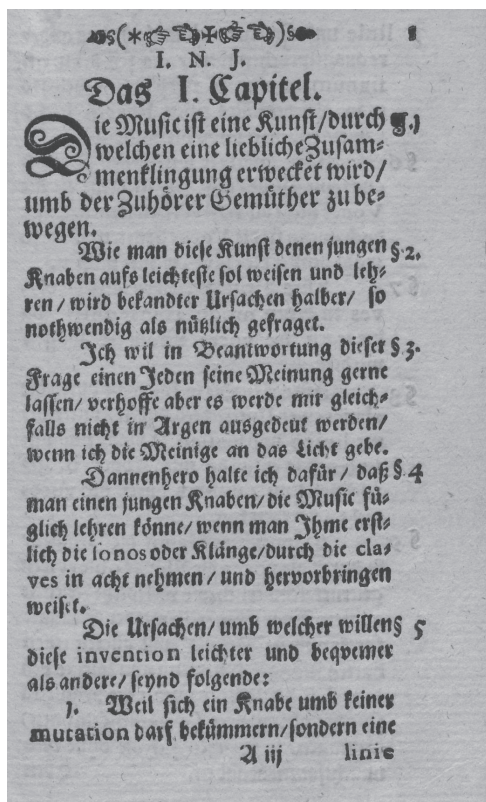 1
I. N. J.
Das I. Capitel.
Die Music ist eine Kunst/durch §.1
welchen eine liebliche Zusam-
menklingung erwecket wird/
umb der Zuhörer Gemüther zu be-
wegen.
Wie man diese Kunst denen jungen §.2.
Knaben aufs leichteste sol weisen und leh-
ren/ wird bekandter Ursachen halber/ so
nothwendig als nützlich gefraget.
Ich wil in Beantwortung dieser §.3.
Frage einen Jeden seine Meinung gerne
lassen/ verhoffe aber es werde mir gleich-
falls nicht in Argen ausgedeut werden/
wenn ich die Meinige an das Licht gebe.
Dannenhero halte ich dafür/ daß §.4
man einen jungen Knaben/die Music fü-
glich lehren könne/wenn man Ihme erst-
lich die sonos oder Klänge/durch die cla-
ves in acht nehmen/ und hervorbringen
weiset.
Die Ursachen/ umb welcher willen § 5
diese invention leichter und beqvemer
als andere/ seynd folgende:
1. Weil sich ein Knabe umb keiner
mutation darf bekümmern/sondern eine
A iij linie